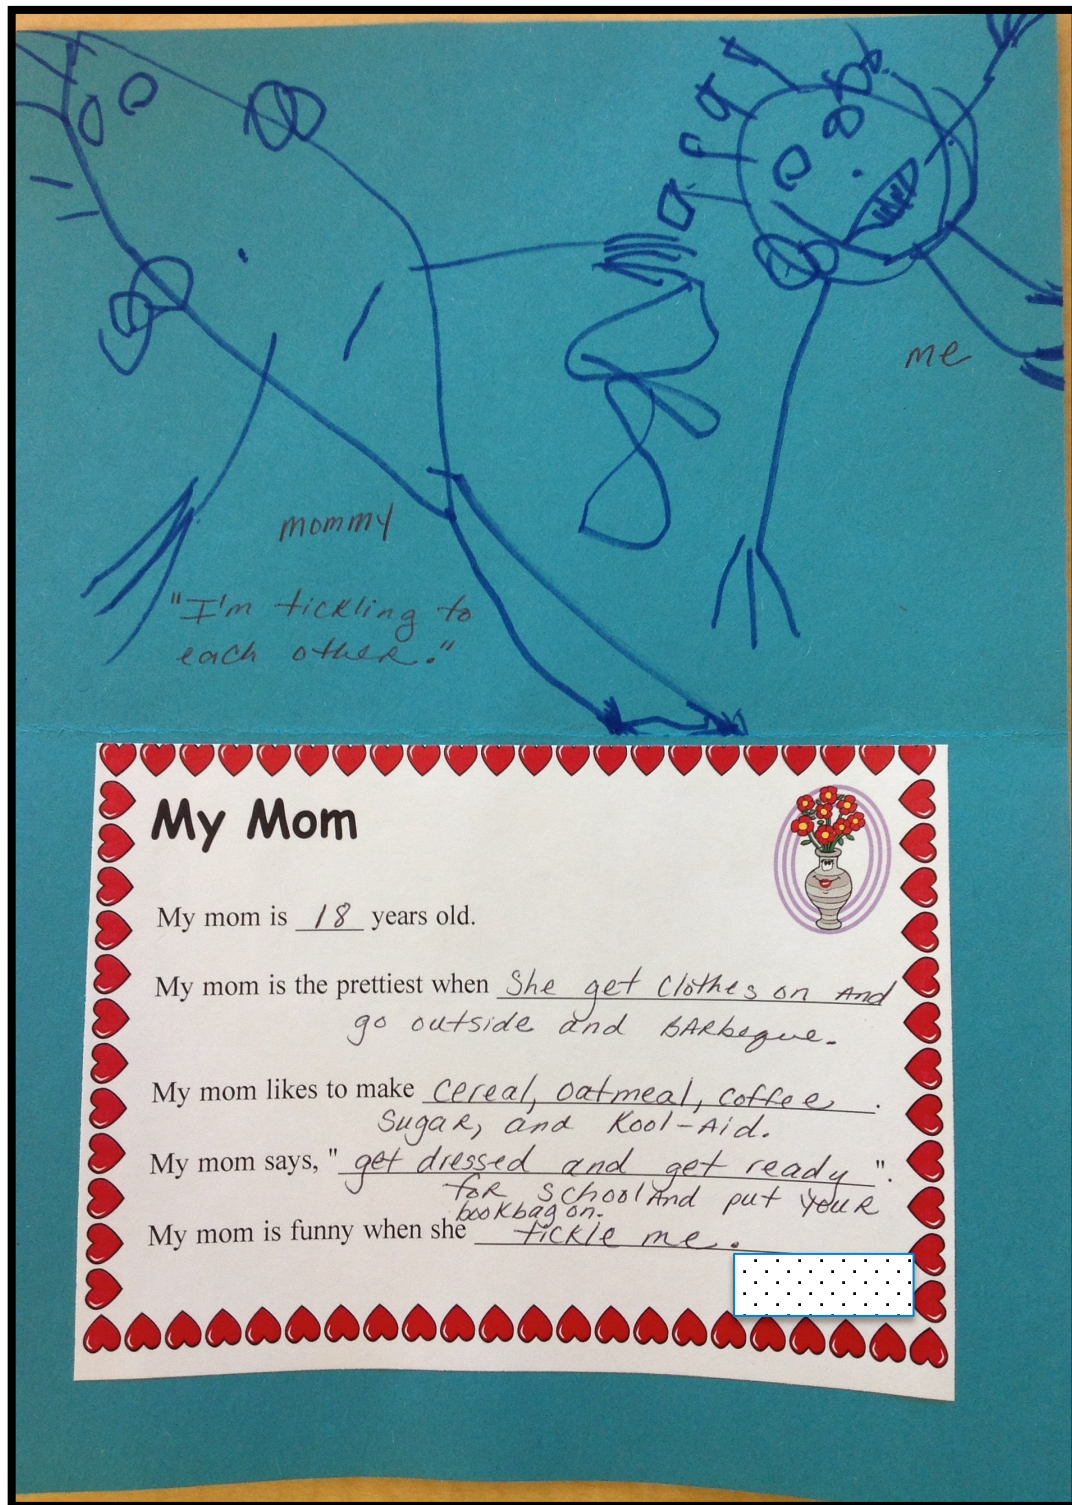 me
mommy
"I'm tickling to
each other."
My Mom
My mom is 18 years old.
My mom is the prettiest when She get clothes on And
go outside and BARbeque.
My mom likes to make cereal, oatmeal, coffee.
Sugar, and Kool-Aid.
My mom says, "get dressed and get ready".
for school And put your
bookbag on.
My mom is funny when she tickle me.